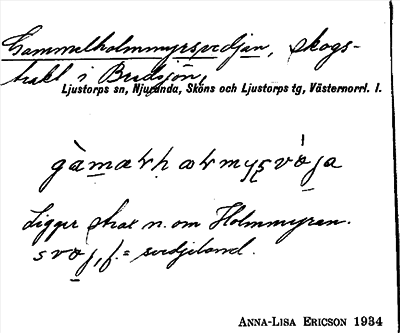 Gammelholmmyrsvedjan, skogs-
trakt i Bredsjön,
Ljustorps sn, Njurunda, Sköns och Ljustorps tg, Västernorrl. l.
Ligger strax n. om Holmmyran.
f. = svedjeland.
ANNA-LISA ERICSON 1934